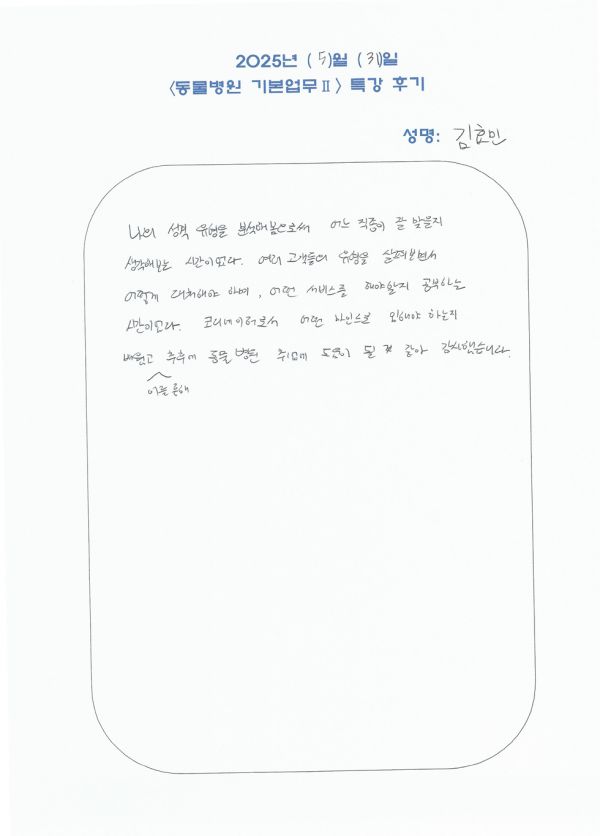 2025년 (5)월 (31)일
<동물병원 기본업무Ⅱ> 특강 후기
성명: 김효민
나의 성격 유형을 분석해봄으로써 어느 직종이 잘 맞을지
생각해보는 시간이었다. 여러 고객들의 유형을 살펴보면서
어떻게 대처해야 하며, 어떤 서비스를 해야할지 공부하는
시간이었다. 코디네이터로서 어떤 마인드를 해야 하는지
배웠고 추후에 동물병원 취업에 도움이 될 것 같아 감사했습니다.
이를 통해